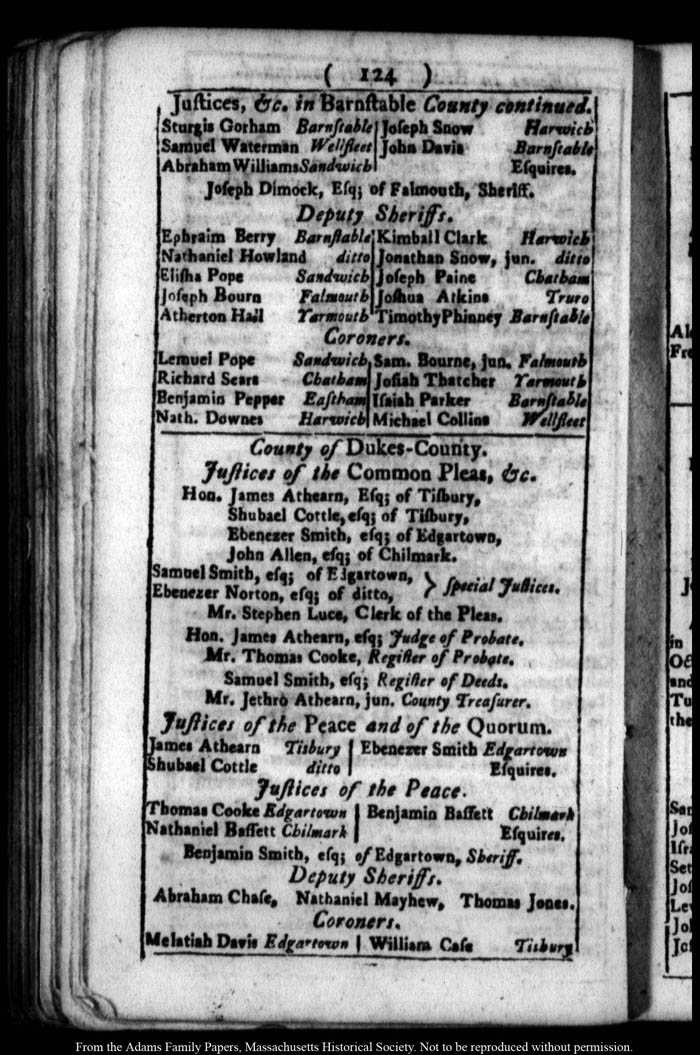 ( 124 )
Juſtices, &c. in Barnſtable County continued.
Sturgis Gorham Barnſtable | Joſeph Snow Harwich
Samuel Waterman Wellfleet | John Davis Barnſtable
Abraham Williams Sandwich | Eſquires.
Joſeph Dimock, Eſq; of Falmouth, Sheriff.
Deputy Sheriffs.
Ephraim Berry Barnſtable | Kimball Clark Harwich
Nathaniel Howland ditto | Jonathan Snow, jun. ditto
Eliſha Pope Sandwich | Joſeph Paine Chatham
Joſeph Bourn Falmouth | Joſhua Atkins Truro
Atherton Hall Yarmouth | Timothy Phinney Barnſtable
Coroners.
Lemuel Pope Sandwich | Sam. Bourne, jun. Falmouth
Richard Sears Chatham | Joſiah Thatcher Yarmouth
Benjamin Pepper Eaſtham | Iſaiah Parker Barnſtable
Nath. Downes Harwich | Michael Collins Wellfleet
County of Dukes-County.
Juſtices of the Common Pleas, &c.
Hon. James Athearn, Eſq; of Tiſbury,
Shubael Cottle, eſq; of Tiſbury,
Ebenezer Smith, eſq; of Edgartown,
John Allen, eſq; of Chilmark.
Samuel Smith, eſq; of Edgartown,
Ebenezer Norton, eſq; of ditto, } Special Juſtices.
Mr. Stephen Luce, Clerk of the Pleas.
Hon. James Athearn, eſq; Judge of Probate.
Mr. Thomas Cooke, Regiſter of Probate.
Samuel Smith, eſq; Regiſter of Deeds.
Mr. Jethro Athearn, jun. County Treaſurer.
Juſtices of the Peace and of the Quorum.
James Athearn Tisbury | Ebenezer Smith Edgartown
Shubael Cottle ditto | Eſquires.
Juſtices of the Peace.
Thomas Cooke Edgartown | Benjamin Baſſett Chilmark
Nathaniel Baſſett Chilmark | Eſquires.
Benjamin Smith, eſq; of Edgartown, Sheriff.
Deputy Sheriffs.
Abraham Chaſe, Nathaniel Mayhew, Thomas Jones.
Coroners.
Melatiah Davis Edgartown | William Caſe Tisbury
in
and
Tu
the
Jo
Set
From the Adams Family Papers, Massachusetts Historical Society. Not to be reproduced without permission.